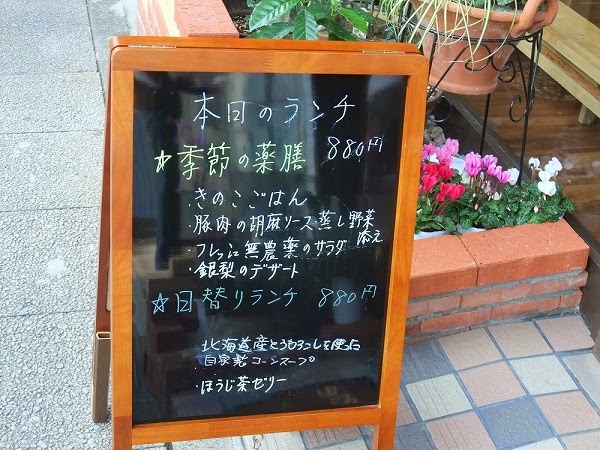 本日のランチ
☆季節の薬膳 880円
・きのこごはん
・豚肉の胡麻ソース・蒸し野菜添え
・フレッシュ無農薬のサラダ
・銀梨のデザート
☆日替りランチ 880円
・北海道産とうもろこしを使った
自家製コーンスープ
・ほうじ茶ゼリー